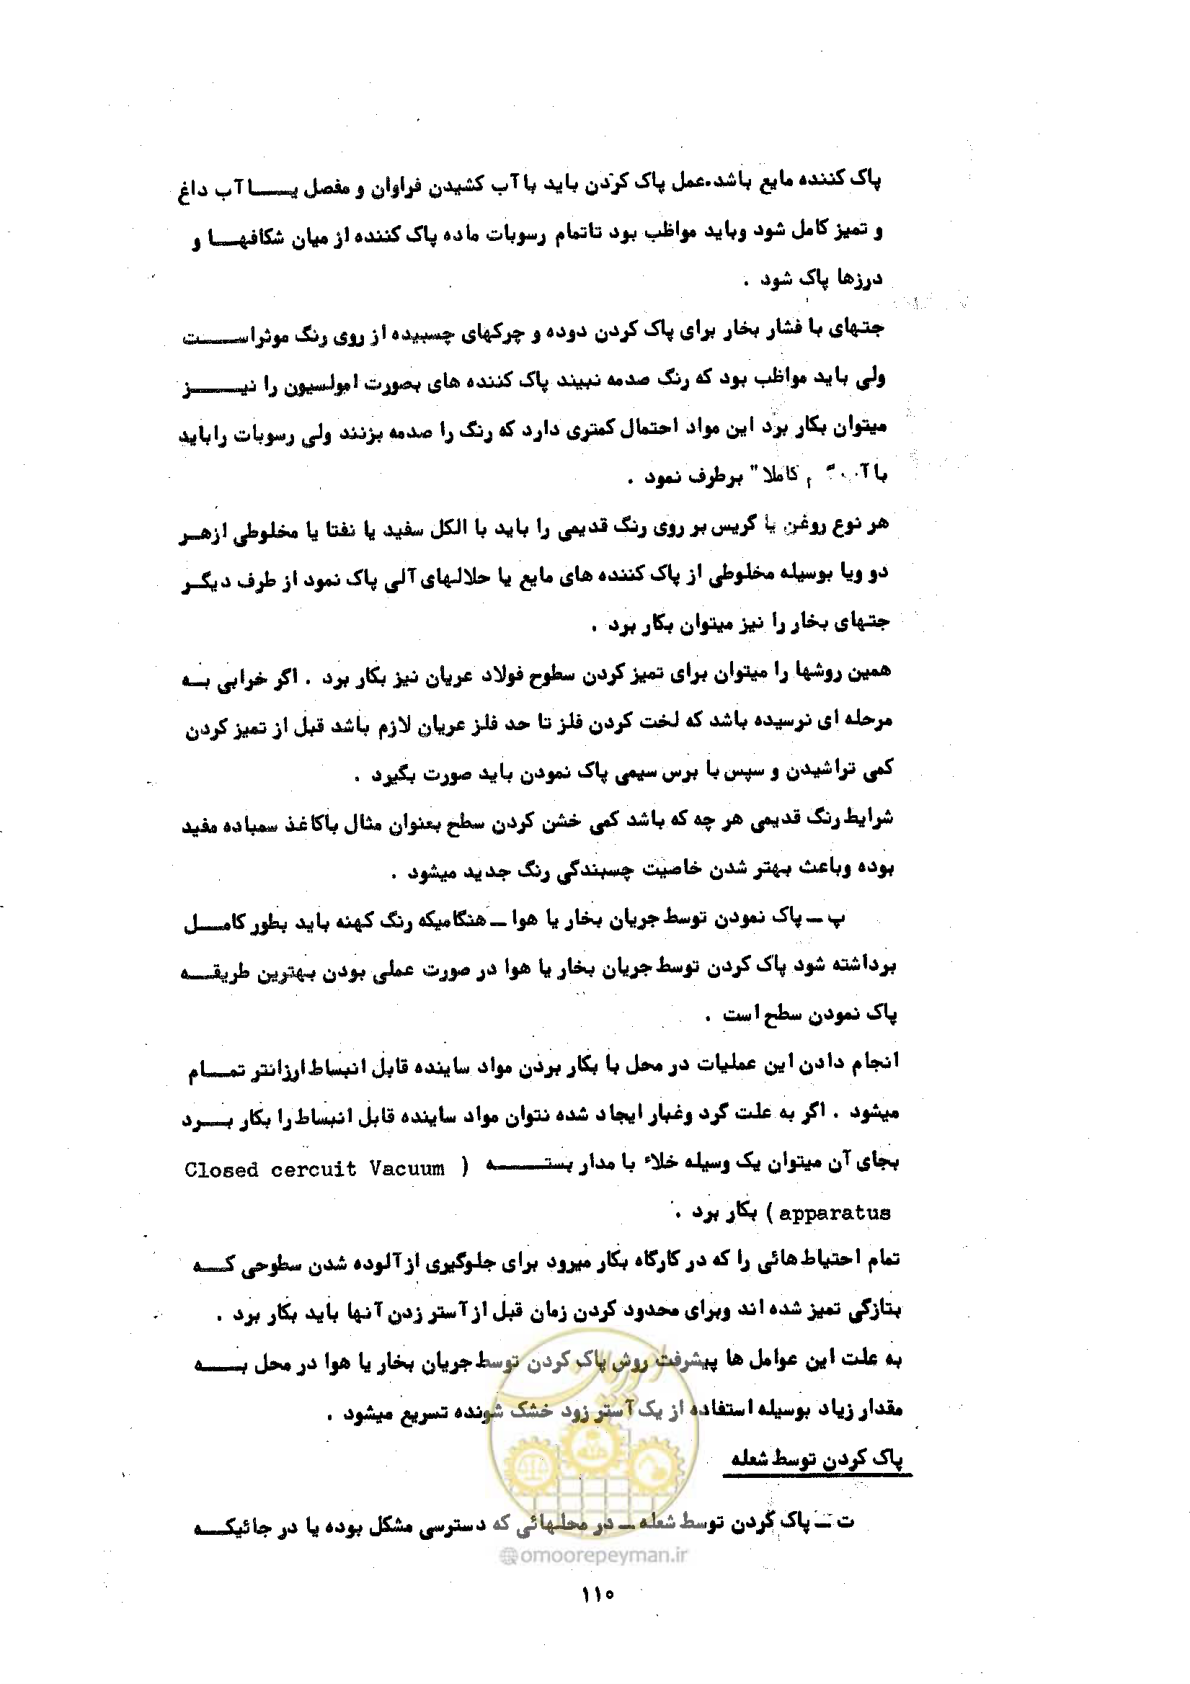 پاک کننده مایع باشد.عمل پاک کردن باید با آب کشیدن فراوان و مفصل یا آب داغ
و تمیز کامل شود وباید مواظب بود تاتمام رسوبات ماده پاک کننده از میان شکافها و
درزها پاک شود .
جتهای با فشار بخار برای پاک کردن دوده و چرکهای چسبیده از روی رنگ موثراست
ولی باید مواظب بود که رنگ صدمه نبیند پاک کننده های بصورت امولسیون را نیز
میتوان بکار برد این مواد احتمال کمتری دارد که رنگ را صدمه بزنند ولی رسوبات راباید
با کاملا" برطرف نمود .
هر نوع روغن یا گریس بر روی رنگ قدیمی را باید با الکل سفید یا نفتا یا مخلوطی ازهر
دو ویا بوسیله مخلوطی از پاک کننده های مایع یا حلالهای آلی پاک نمود از طرف دیگر
جتهای بخار را نیز میتوان بکار برد .
همین روشها را میتوان برای تمیز کردن سطوح فولاد عریان نیز بکار برد . اگر خرابی به
مرحله ای نرسیده باشد که لخت کردن فلز تا حد فلز عریان لازم باشد قبل از تمیز کردن
کمی تراشیدن و سپس با برس سیمی پاک نمودن باید صورت بگیرد .
شرایط رنگ قدیمی هر چه که باشد کمی خشن کردن سطح بعنوان مثال باکاغذ سمباده مفید
بوده وباعث بهتر شدن خاصیت چسبندگی رنگ جدید میشود .
پ ــ پاک نمودن توسط جریان بخار یا هوا ــ هنگامیکه رنگ کهنه باید بطور کامل
برداشته شود پاک کردن توسط جریان بخار یا هوا در صورت عملی بودن بهترین طریقه
پاک نمودن سطح است .
انجام دادن این عملیات در محل با بکار بردن مواد ساینده قابل انبساط ارزانتر تمام
میشود . اگر به علت گرد وغبار ایجاد شده نتوان مواد ساینده قابل انبساط را بکار برد
بجای آن میتوان یک وسیله خلاء با مدار بسته ( Closed cercuit Vacuum
apparatus ) بکار برد .
تمام احتیاط هائی را که در کارگاه بکار میرود برای جلوگیری از آلوده شدن سطوحی که
بتازگی تمیز شده اند وبرای محدود کردن زمان قبل از آستر زدن آنها باید بکار برد .
به علت این عوامل ها پیشرفت روش پاک کردن توسط جریان بخار یا هوا در محل به
مقدار زیاد بوسیله استفاده از یک آستر زود خشک شونده تسریع میشود .
پاک کردن توسط شعله
ت ــ پاک کردن توسط شعله ــ در محلهائی که دسترسی مشکل بوده یا در جائیکه
@omoorepeyman.ir
۱۱۰